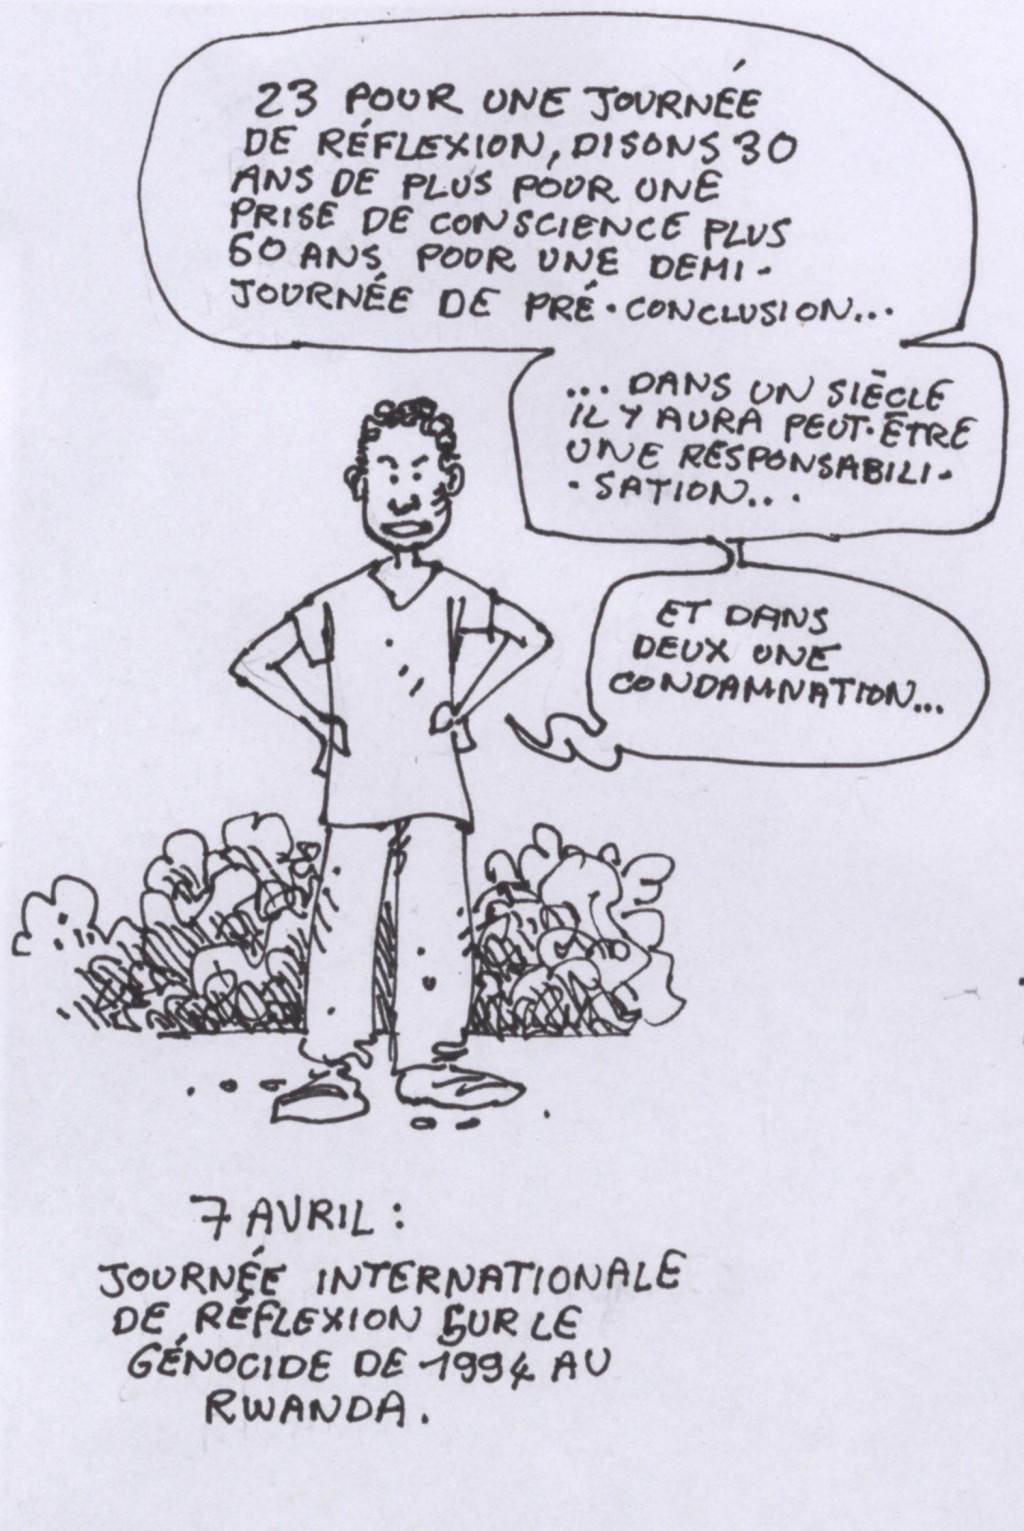 23 POUR UNE JOURNÉE
DE RÉFLEXION, DISONS 30
ANS DE PLUS POUR UNE
PRISE DE CONSCIENCE PLUS
60 ANS POUR UNE DEMI-
JOURNÉE DE PRÉ-CONCLUSION...
... DANS UN SIÈCLE
IL Y AURA PEUT-ÊTRE
UNE RESPONSABILI-
-SATION...
ET DANS
DEUX UNE
CONDAMNATION...
7 AVRIL :
JOURNÉE INTERNATIONALE
DE RÉFLEXION SUR LE
GÉNOCIDE DE 1994 AU
RWANDA.